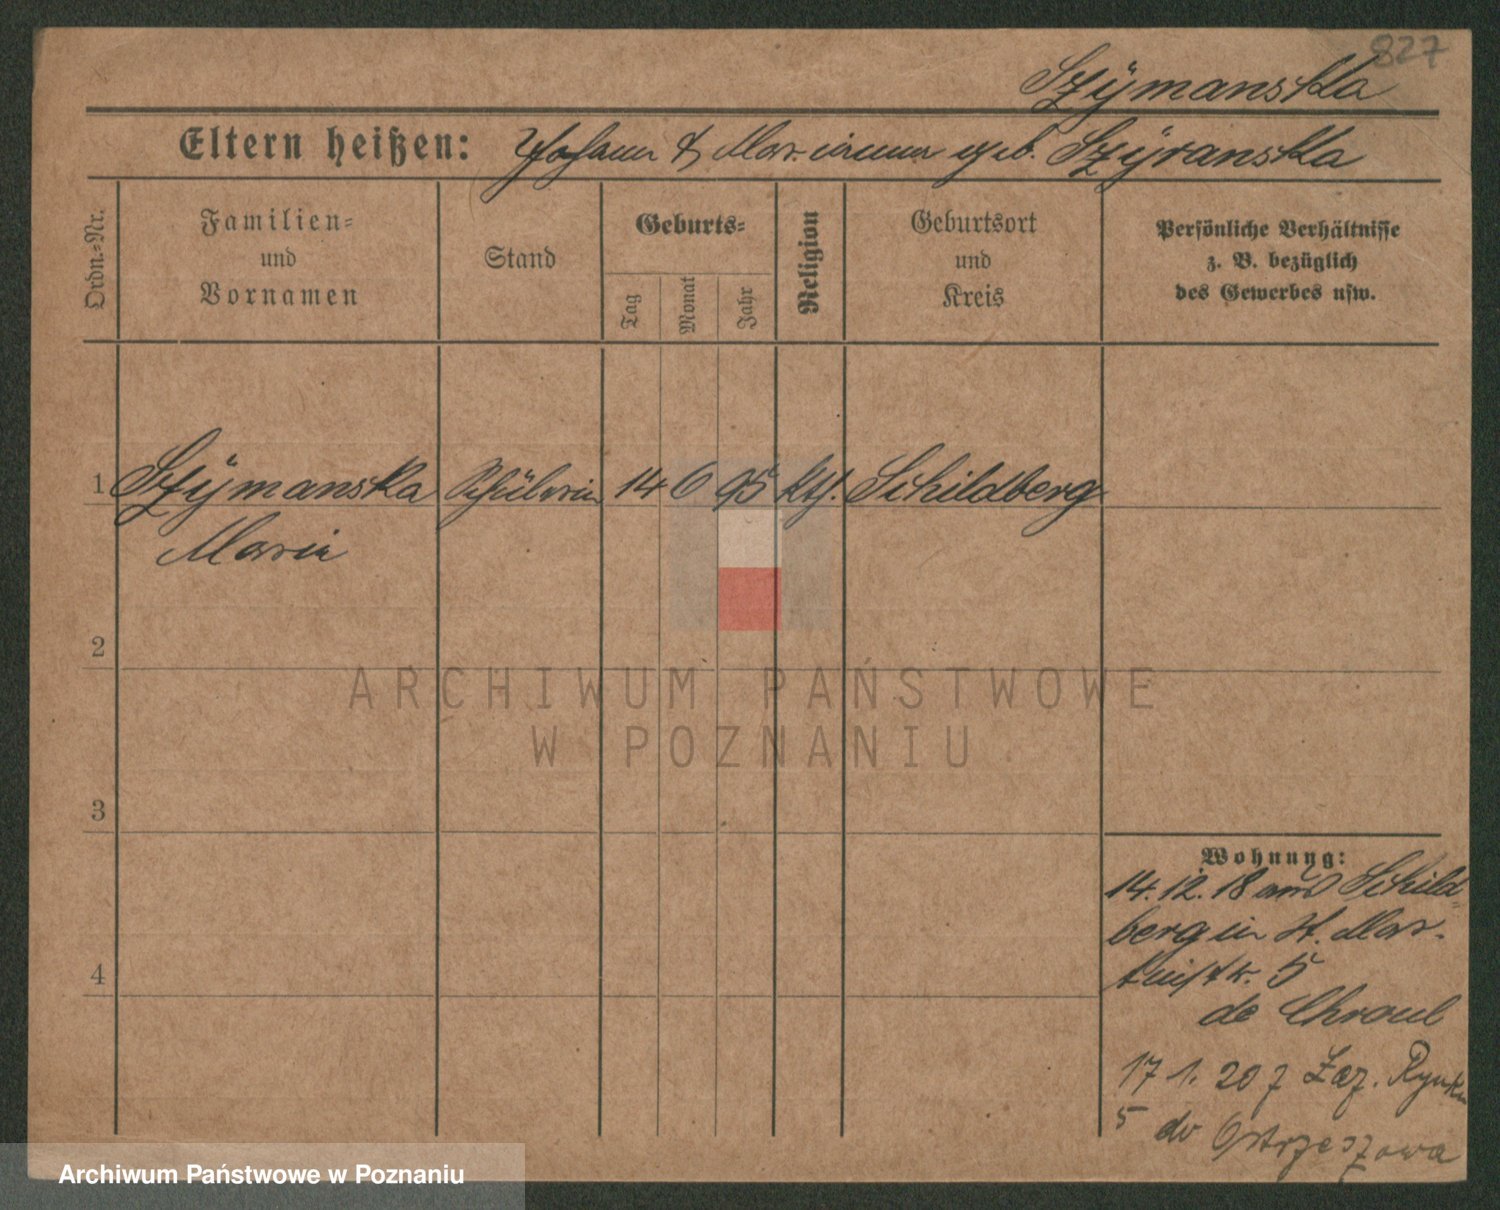 827
Szÿmanska
Eltern heißen: Johann & Marianna geb. Szÿranska
Ordn.=Nr.
Familien=
und
Vornamen
Stand
Geburts=
Tag
Monat
Jahr
Religion
Geburtsort
und
Kreis
Persönliche Verhältnisse
z. B. bezüglich
des Gewerbes usw.
1 Szÿmanska Schülerin 14 6 95 kth. Schildberg
Maria
2
3
4
Wohnung:
14.12.18 aus Schild=
berg in St. Mar-
tinstr. 5
de
17 1. 20 z Łaz. Rynku
5 do Ostrzeszowa
ARCHIWUM PAŃSTWOWE
W POZNANIU
Archiwum Państwowe w Poznaniu